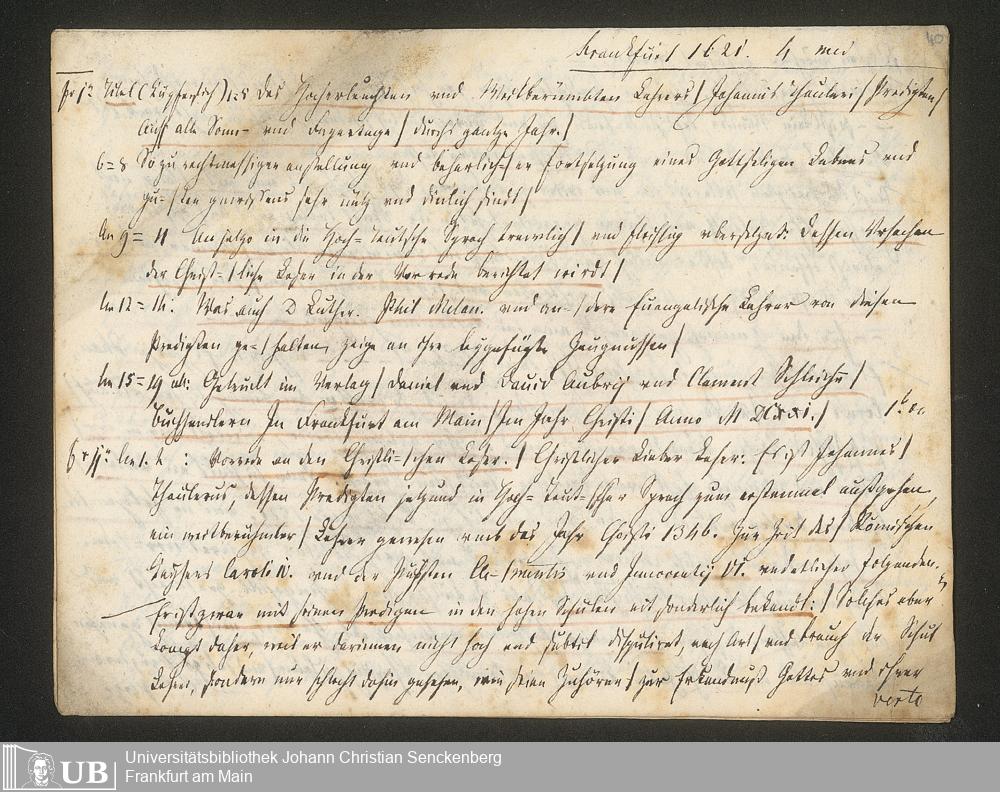 40
Frankfurt 1621. 4 med
Titel (Kupferstich) 1=5 Des Hocherleuchten vnd Weitberümbten Lehrers / Johannis Thauleri / Predigten /
Auff alle Sonn- vnd Feyertage / durchs gantze Jahr. /
6=8 So zu rechtmessiger anstellung vnd beharlich-/er fortsetzung eines Gottseligen Lebens vnd
gu-/ten gewissens sehr nütz vnd dienlich sindt /
9=11 Anjetzo in die Hoch-Teutsche Sprach trewlich / vnd fleissig vbersetzet. Dessen Vrsachen
der Christ-/liche Leser in der Vorrede berichtet wirdt /
12=14: Was auch D Luther. Phil Melan. vnd an-/dere Euangelische Lehrer von diesen
Predigten ge-/halten, zeige an ihre beygefügte Zeugnussen /
15=19 Getruckt im Verlag / Daniel vnd Dauid Aubrij vnd Clement Schleichen /
Buchhendlern In Franckfurt am Main / Im Jahr Christi / Anno M DCXXI. /
Vorrede an den Christli-/chen Leser. / Christlicher Lieber Leser. Es ist Johannes /
Thaulerus, dessen Predigten jetzund in Hoch-Teut-/scher Sprach zum erstenmal außgehen,
ein weitberühmbter / Lehrer gewesen vmb das Jahr Christi 1346. Zur Zeit des / Römischen
Keysers Caroli IV. vnd der Päpsten Cle-/mentis vnd Innocentij VI. vnd etlicher folgenden.
Er ist zwar mit seinen Predigen in den hohen Schulen nit sonderlich bekandt: / Solches aber
kompt daher, weil er darinnen nicht hoch vnd subtil disputiret, nach Art / vnd brauch der Schul
Lehrer, sondern nur schlecht dahin gesehen, wie seine Zuhörer / zur Erkandtnuß Gottes vnd ihrer
verte
UB
Universitätsbibliothek Johann Christian Senckenberg
Frankfurt am Main